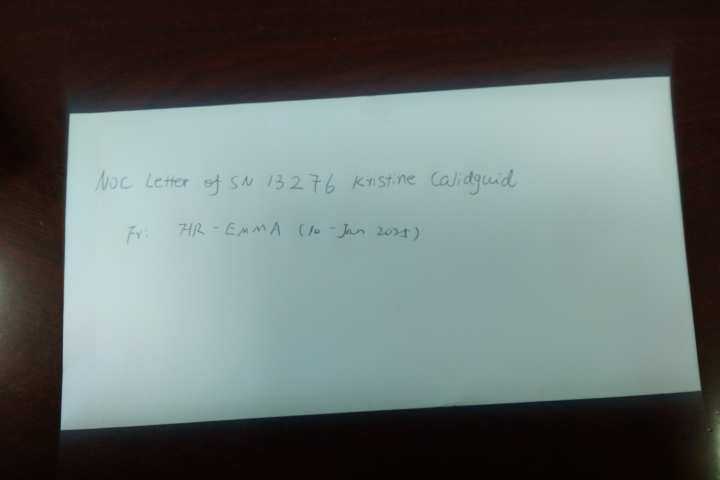 NOC Letter of SN 13276 Kristine Calidguid
Fr: HR - EMMA (10 - Jan 2025)